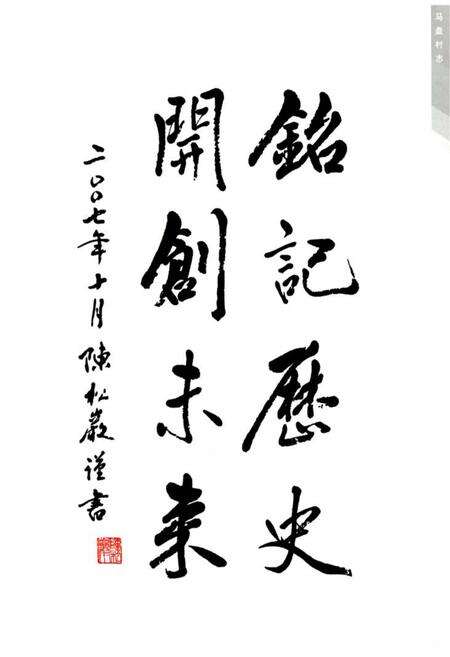 马盘村志
銘記歷史
開創未来
二〇〇七年十月 陳松巖謹書